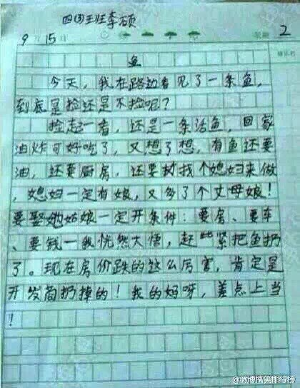 四(1)班李硕
9月15日 2
鱼
今天，我在路边看见了一条鱼，
到底是捡还是不捡呢？
捡起一看，还是一条活鱼，回家
油炸可好吃了，又想了想，有鱼还要
油，还要厨房，还要找个媳妇来做
，媳妇一定有娘，又多了个丈母娘！
要娶她姑娘一定开条件：要房、要车
、要钱一我恍然大悟，赶紧把鱼扔
了。现在房价跌的这么厉害，肯定是
开发商扔掉的！我的妈呀，差点上当
！